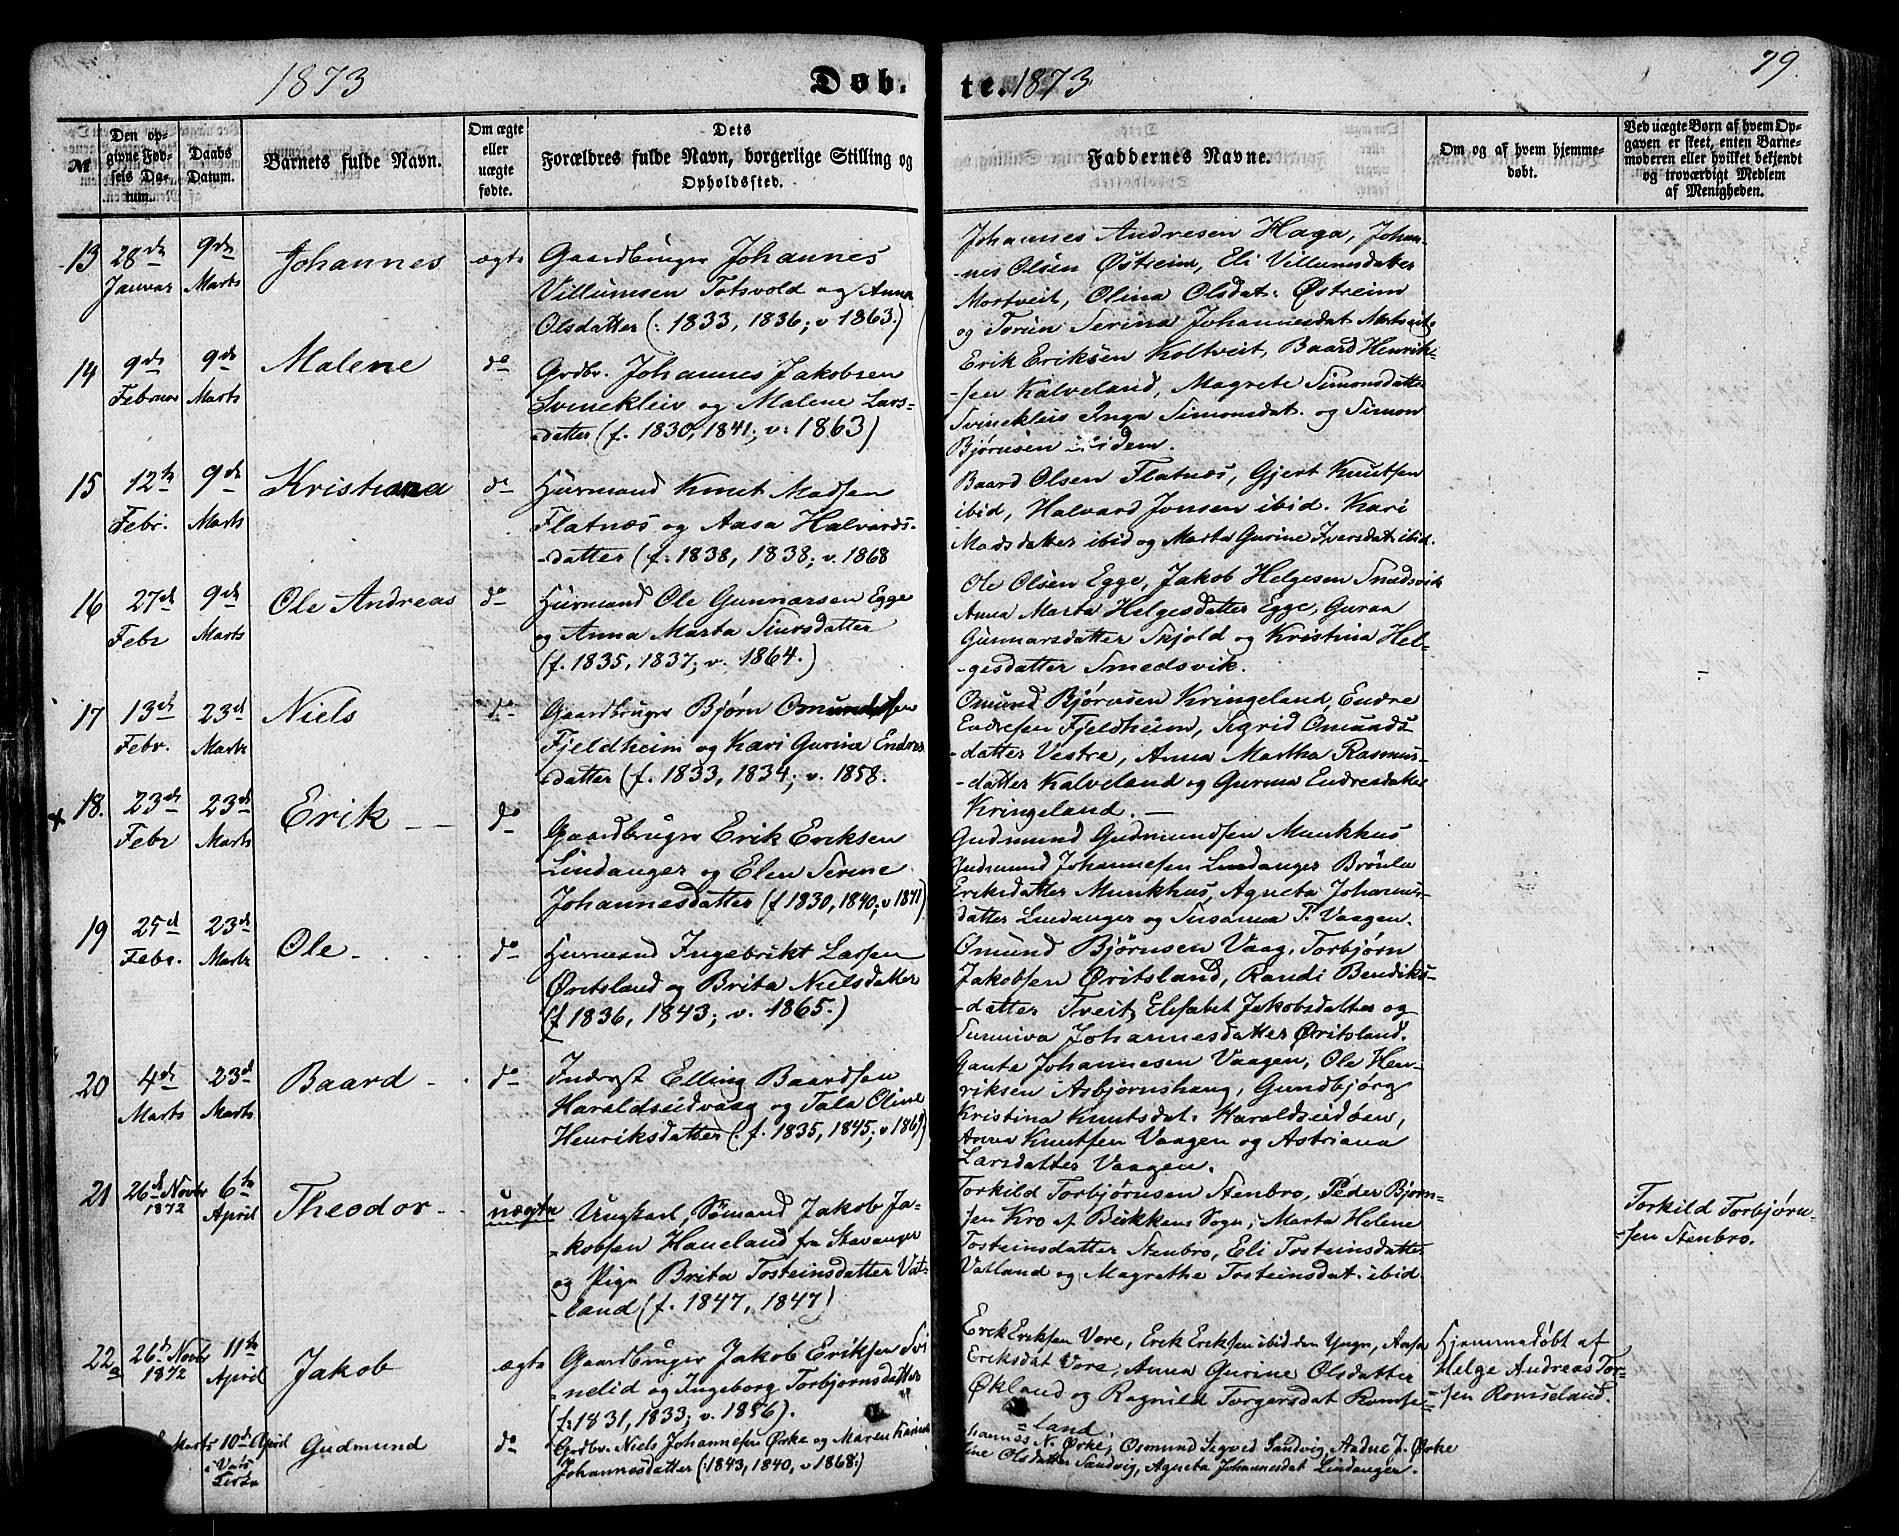 1873 Døb- te. 1873 79.
№
Den opgivne Fødsels Datum.
Daabs Datum.
Barnets fulde Navn.
Om ægte eller uægte fødte.
Dets Forældres fulde Navn, borgerlige Stilling og Opholdssted.
Faddernes Navne.
Om og af hvem hjemmedøbt.
Ved uægte Børn af hvem Opgaven er skeet, enten Barnemoderen eller hvilket bekjendt og troværdigt Medlem af Menigheden.
13 28de Januar 9de Marts Johannes ægte
Gaardbruger Johannes
Villumsen Totsvold og Anna
Olsdatter (: 1833, 1836; v 1863.)
Johannes Andresen Haga, Johan-
-nes Olsen Østreim, Eli Villumsdatter
Mortveit, Olina Olsdat. Østreim
og Torun Serina Johannesdat Mortveit.
14 9de Februar 9de Marts Malene do
Grdbr. Johannes Jakobsen
Svinekleiv og Malene Lars-
-datter (f. 1830, 1841; v: 1863)
Erik Eriksen Koltveit, Baard Henrik-
-sen Kalveland, Magrete Simonsdatter
Svinekleiv Inga Simonsdat. og Simon
Bjørnsen ibidem.
15 12te Febr. 9de Marts Kristiana do
Huusmand Knut Madsen
Flatnæs og Aasa Halvards-
-datter (f. 1838, 1838; v. 1868
Baard Olsen Flatnæs, Gjert Knutsen
ibid, Halvard Jonsen ibid. Kari
Madsdatter ibid og Marta Gurine Iversdat ibid.
16 27de Febr 9de Marts Ole Andreas do
Huusmand Ole Gunnarsen Egge
og Anna Marta Siursdatter
(f. 1835, 1837; v. 1864.)
Ole Olsen Egge, Jakob Helgesen Smedsvik
Anna Marta Helgesdatter Egge, Guraa
Gunnarsdatter Skjold og Kristina Hel-
-gesdatter Smedsvik.
17 13de Febr. 23de Marts Niels do
Gaardbruger Bjørn Omundsen
Fjeldheim og Kari Gurina Endres-
-datter (f. 1833, 1834; v. 1858.
Omund Bjørnsen Kringeland, Endre
Endresen Fjeldheim, Sigrid Omunds-
-datter Vestre, Anna Martha Rasmus-
-datter Kalveland og Gurina Endresdatter
Kringeland. —
18. 23de Febr 23de Marts Erik do
Gaardbruger Erik Eriksen
Lindanger og Elen Serine
Johannesdatter (f 1830, 1840; v 1871)
Gudmund Gudmundsen Munkhus
Gudmund Johannesen Lindanger
Eriksdatter Munkhus, Agneta Johannes-
datter Lindanger og Susanna P. Vaagen.
19 25de Febr. 23de Marts Ole do
Huusmand Ingebrikt Larsen
Øritsland og Brita Nielsdatter
(f 1836, 1843; v. 1865.)
Omund Bjørnsen Vaag, Torbjørn
Jakobsen Øritsland, Randi Bendiks-
-datter Tveit, Elisabet Jakobsdatter og
Sunniva Johannesdatter Øritsland.
20 4de Marts 23de Marts Baard do
Inderst Elling Baardsen
Haraldseidvaag og Tala Oline
Henriksdatter (: f. 1835, 1845; v 1869)
Gaute Johannesen Vaagen, Ole Hen-
riksen Asbjørnshaug, Gundbjørg
Kristina Knutsdat. Haraldseidøen,
Anna Knutsen Vaagen og Astriana
Larsdatter Vaagen.
21 26de Novbr 1872 6te April Theodor uægte
Ungkarl, Sømand Jakob Ja-
-kobsen Haneland fra Stavanger
og Pige Brita Tosteinsdatter Vat-
-land (f. 1847, 1847)
Torkild Torbjørnsen Stenbro, Peder Bjørn-
sen Kro af Bukkens Sogn, Marta Helene
Tosteinsdatter Stenbro, Eli Tosteinsdatter
Vatland og Magrethe Tosteinsdat. ibid.
Torkild Torbjørn-
-sen Stenbro.
22a 26de Novbr 1872 11te April Jakob ægte
Gaardbruger Jakob Eriksen Svi-
nelid og Ingeborg Torbjørnsdatter
(f: 1831, 1833; v. 1856).
Erik Eriksen Vore, Erik Eriksen ibid den Yngr, Aasa
Eriksdat Vore, Anna Gurine Olsdatter
Økland og Ragnild Torgersdat Romse-
-land
Hjemmedøbt af
Helge Andreas Tor-
sen Romseland.
Marts 10de April i Vats Gudmund do
Grdbr. Niels Johannesen Ørke og Maren Karina
Johannesdatter (: 1843, 1840, v 1868.)
hannes N. Ørke, Osmund Sigved Sandvig, Aadne J. Ørke
line Olsdatter Sandvig, Agneta Johannesdat Lindanger.